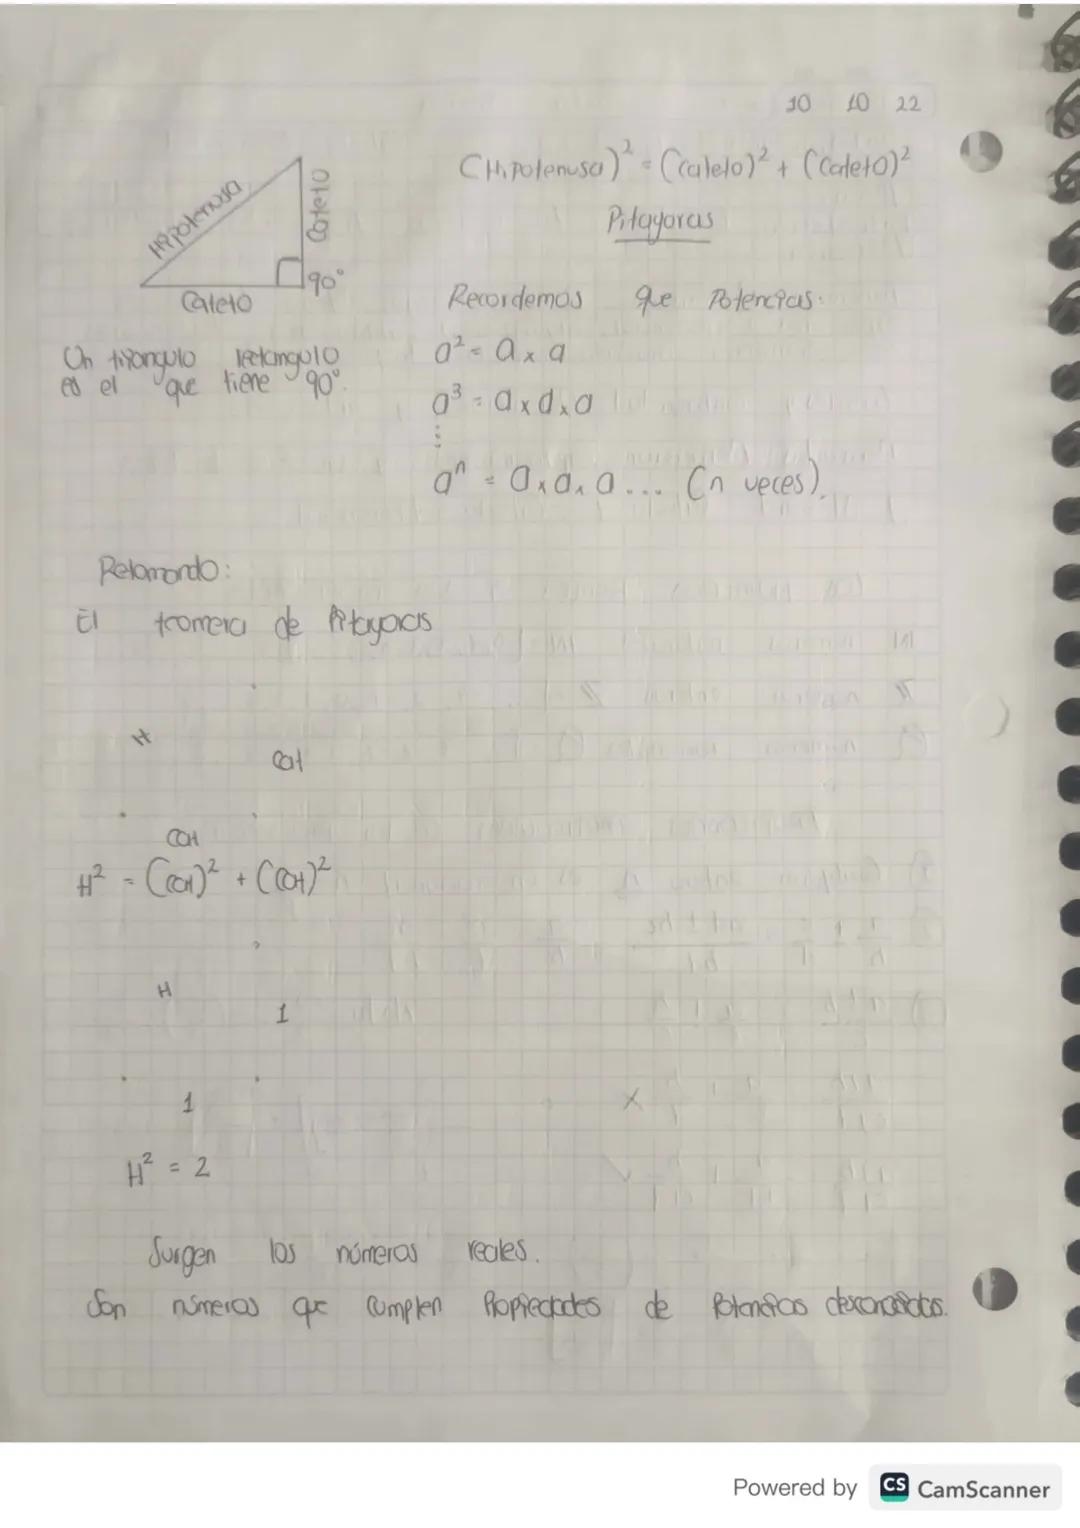 10 10 22
(Hipotenusa)² = (Cateto)² + (Cateto)²
Pitagoras
Hipotenusa
Cateto
90°
Cateto
Un triangulo rectangulo
es el que tiene 90°.
Recordemos que Potencias:
a² = a x a
a³ = a x a x a
⋮
aⁿ = a x a x a ... (n veces).
Retomando:
El teomera de Pitagoras
H
Cat
Cat
H² = (Cat)² + (Cat)²
H
1
1
H² = 2
Surgen los números reales.
Son números que cumplen Propiedades de Potencias
Powered by CS CamScanner